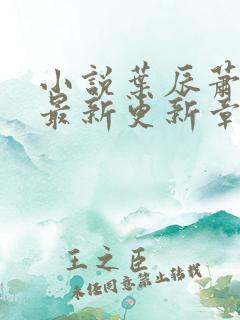 小说葉辰蕭
最新更新章
王之臣
未经同意禁止转载